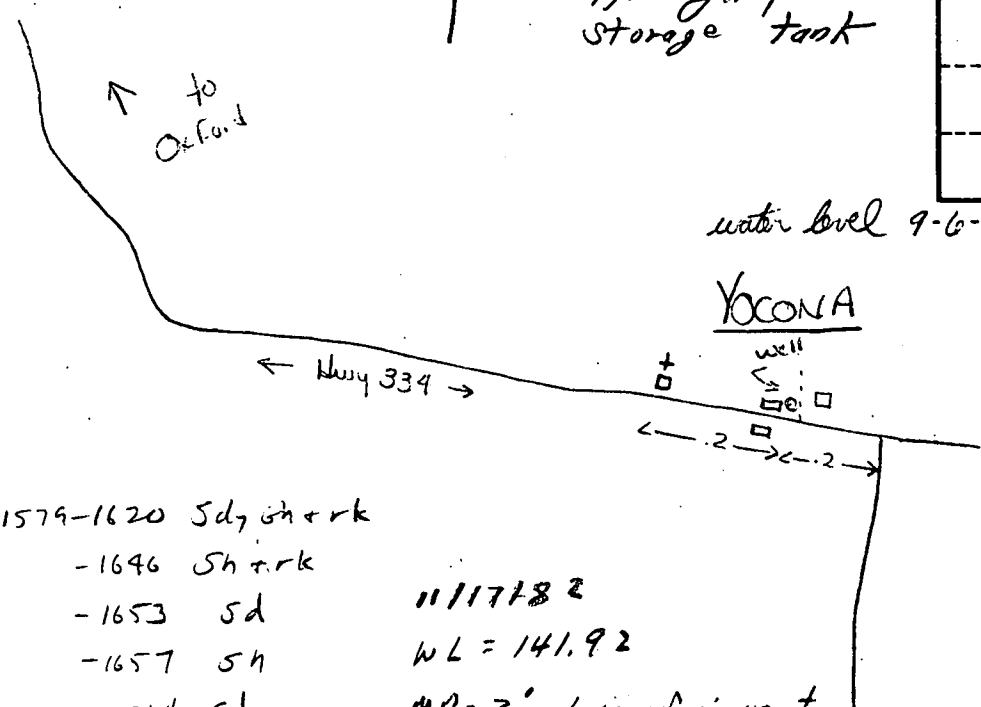 storage tank
↑ to
Oxford
water level 9-6-
YOCONA
well
← Hwy 334 →
.2
.2
1579-1620 Sdy sh & rk
-1646 Sh & rk
-1653 sd
-1657 sh
11/17/82
WL = 141.92